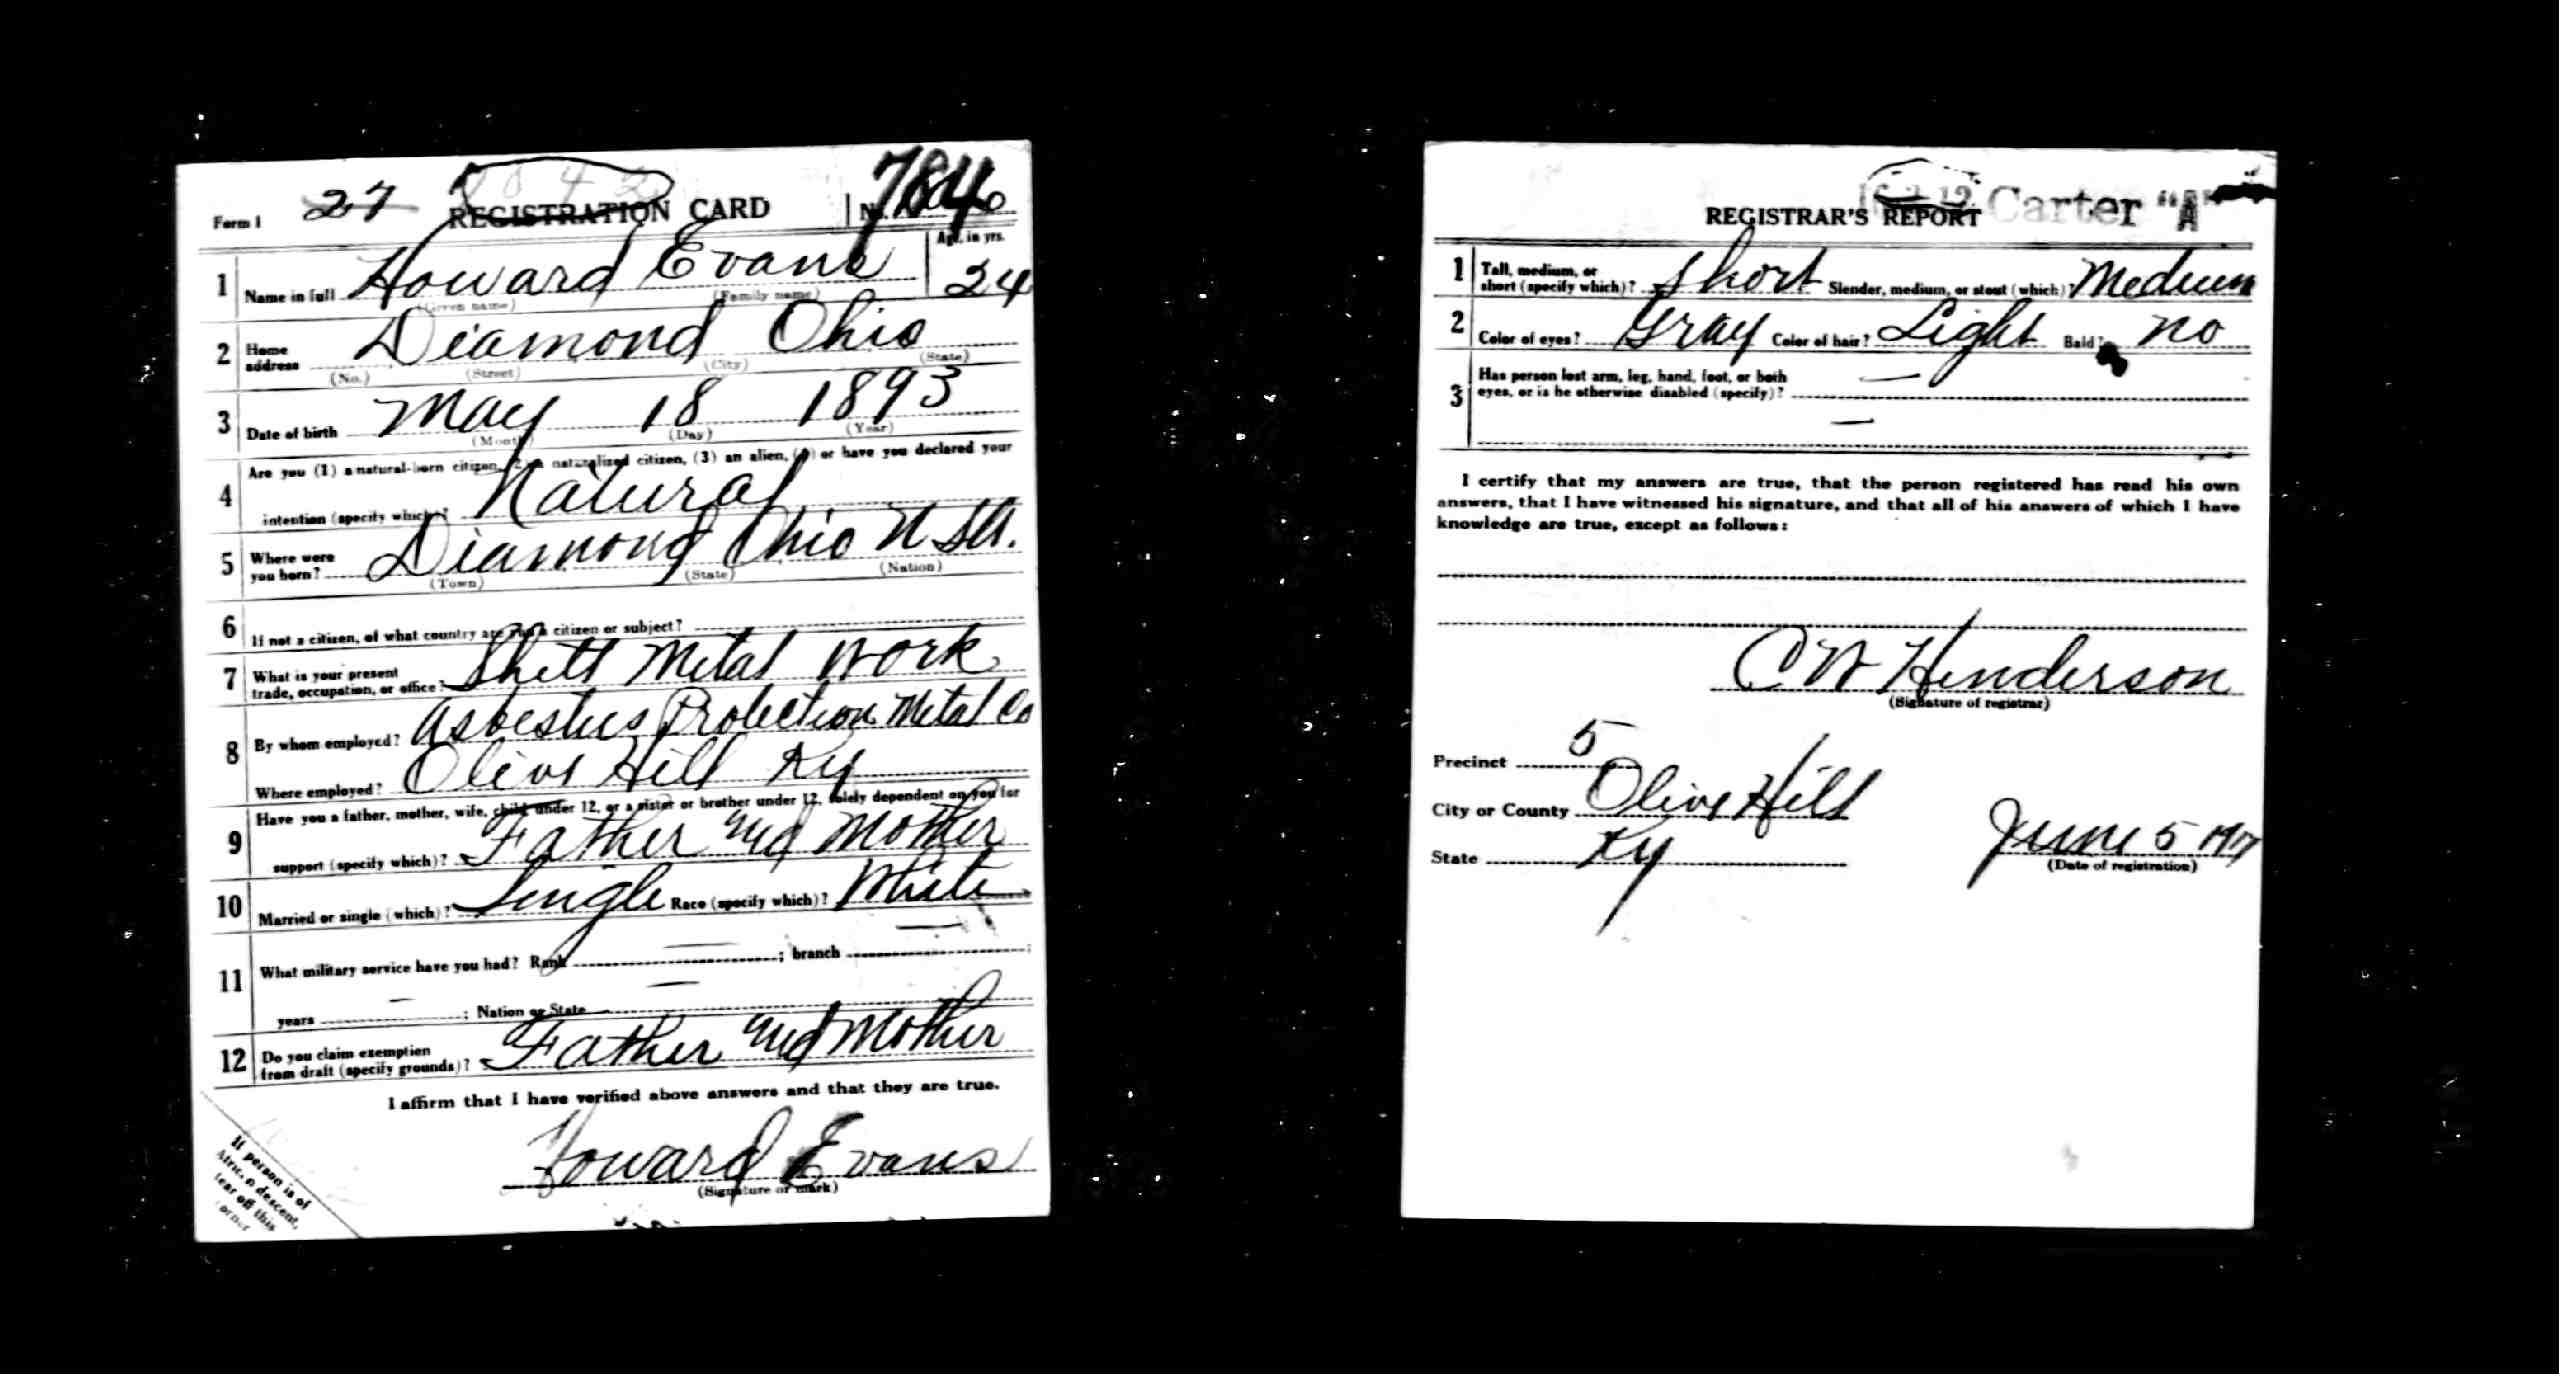 Form 1 27 REGISTRATION CARD No. 784
1 Name in full Howard Evans Age, in yrs. 24
(Given name) (Family name)
2 Home address Diamond Ohio
(No.) (Street) (City) (State)
3 Date of birth May 18 1893
(Month) (Day) (Year)
4 Are you (1) a natural-born citizen, (2) a naturalized citizen, (3) an alien, (4) or have you declared your
intention (specify which)? Natural
5 Where were you born? Diamond Ohio U S A.
(Town) (State) (Nation)
6 If not a citizen, of what country are you a citizen or subject?
7 What is your present
trade, occupation, or office? Shett Metal Work
8 By whom employed? Asbestus Protection Metal Co
Where employed? Olive Hill Ky
9 Have you a father, mother, wife, child under 12, or a sister or brother under 12, solely dependent on you for
support (specify which)? Father and Mother
10 Married or single (which)? Single Race (specify which)? White
11 What military service have you had? Rank — ; branch — ;
years — ; Nation or State —
12 Do you claim exemption
from draft (specify grounds)? Father and Mother
I affirm that I have verified above answers and that they are true.
Howard Evans
(Signature or mark)
If person is of
African descent,
tear off this
corner
Carter "A"
REGISTRAR'S REPORT
1 Tall, medium, or
short (specify which)? Short Slender, medium, or stout (which)? Medium
2 Color of eyes? Gray Color of hair? Light Bald? no
3 Has person lost arm, leg, hand, foot, or both —
eyes, or is he otherwise disabled (specify)?
—
I certify that my answers are true, that the person registered has read his own
answers, that I have witnessed his signature, and that all of his answers of which I have
knowledge are true, except as follows:
C W Henderson
(Signature of registrar)
Precinct 5
City or County Olive Hill
State Ky June 5 1917
(Date of registration)